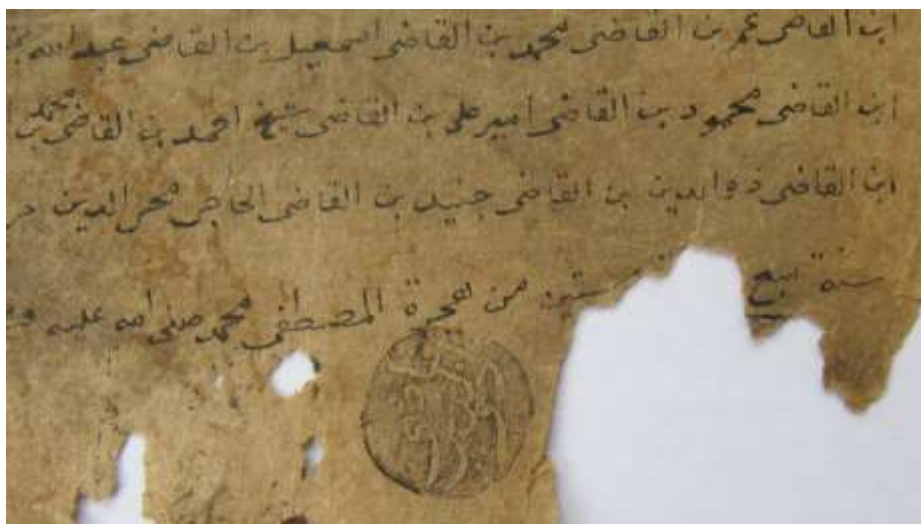 ابن القاضى عمر بن القاضى محمد بن القاضى اسمعيل بن القاضى عبد الله بن
ابن القاضى محمود بن القاضى امير على بن القاضى شيخ احمد بن القاضى محمد بن
ابن القاضى ذو الدين بن القاضى جنيد بن القاضى الحاجى الدين
سنة سبع ستين من هجرة المصطفى محمد صلى الله عليه